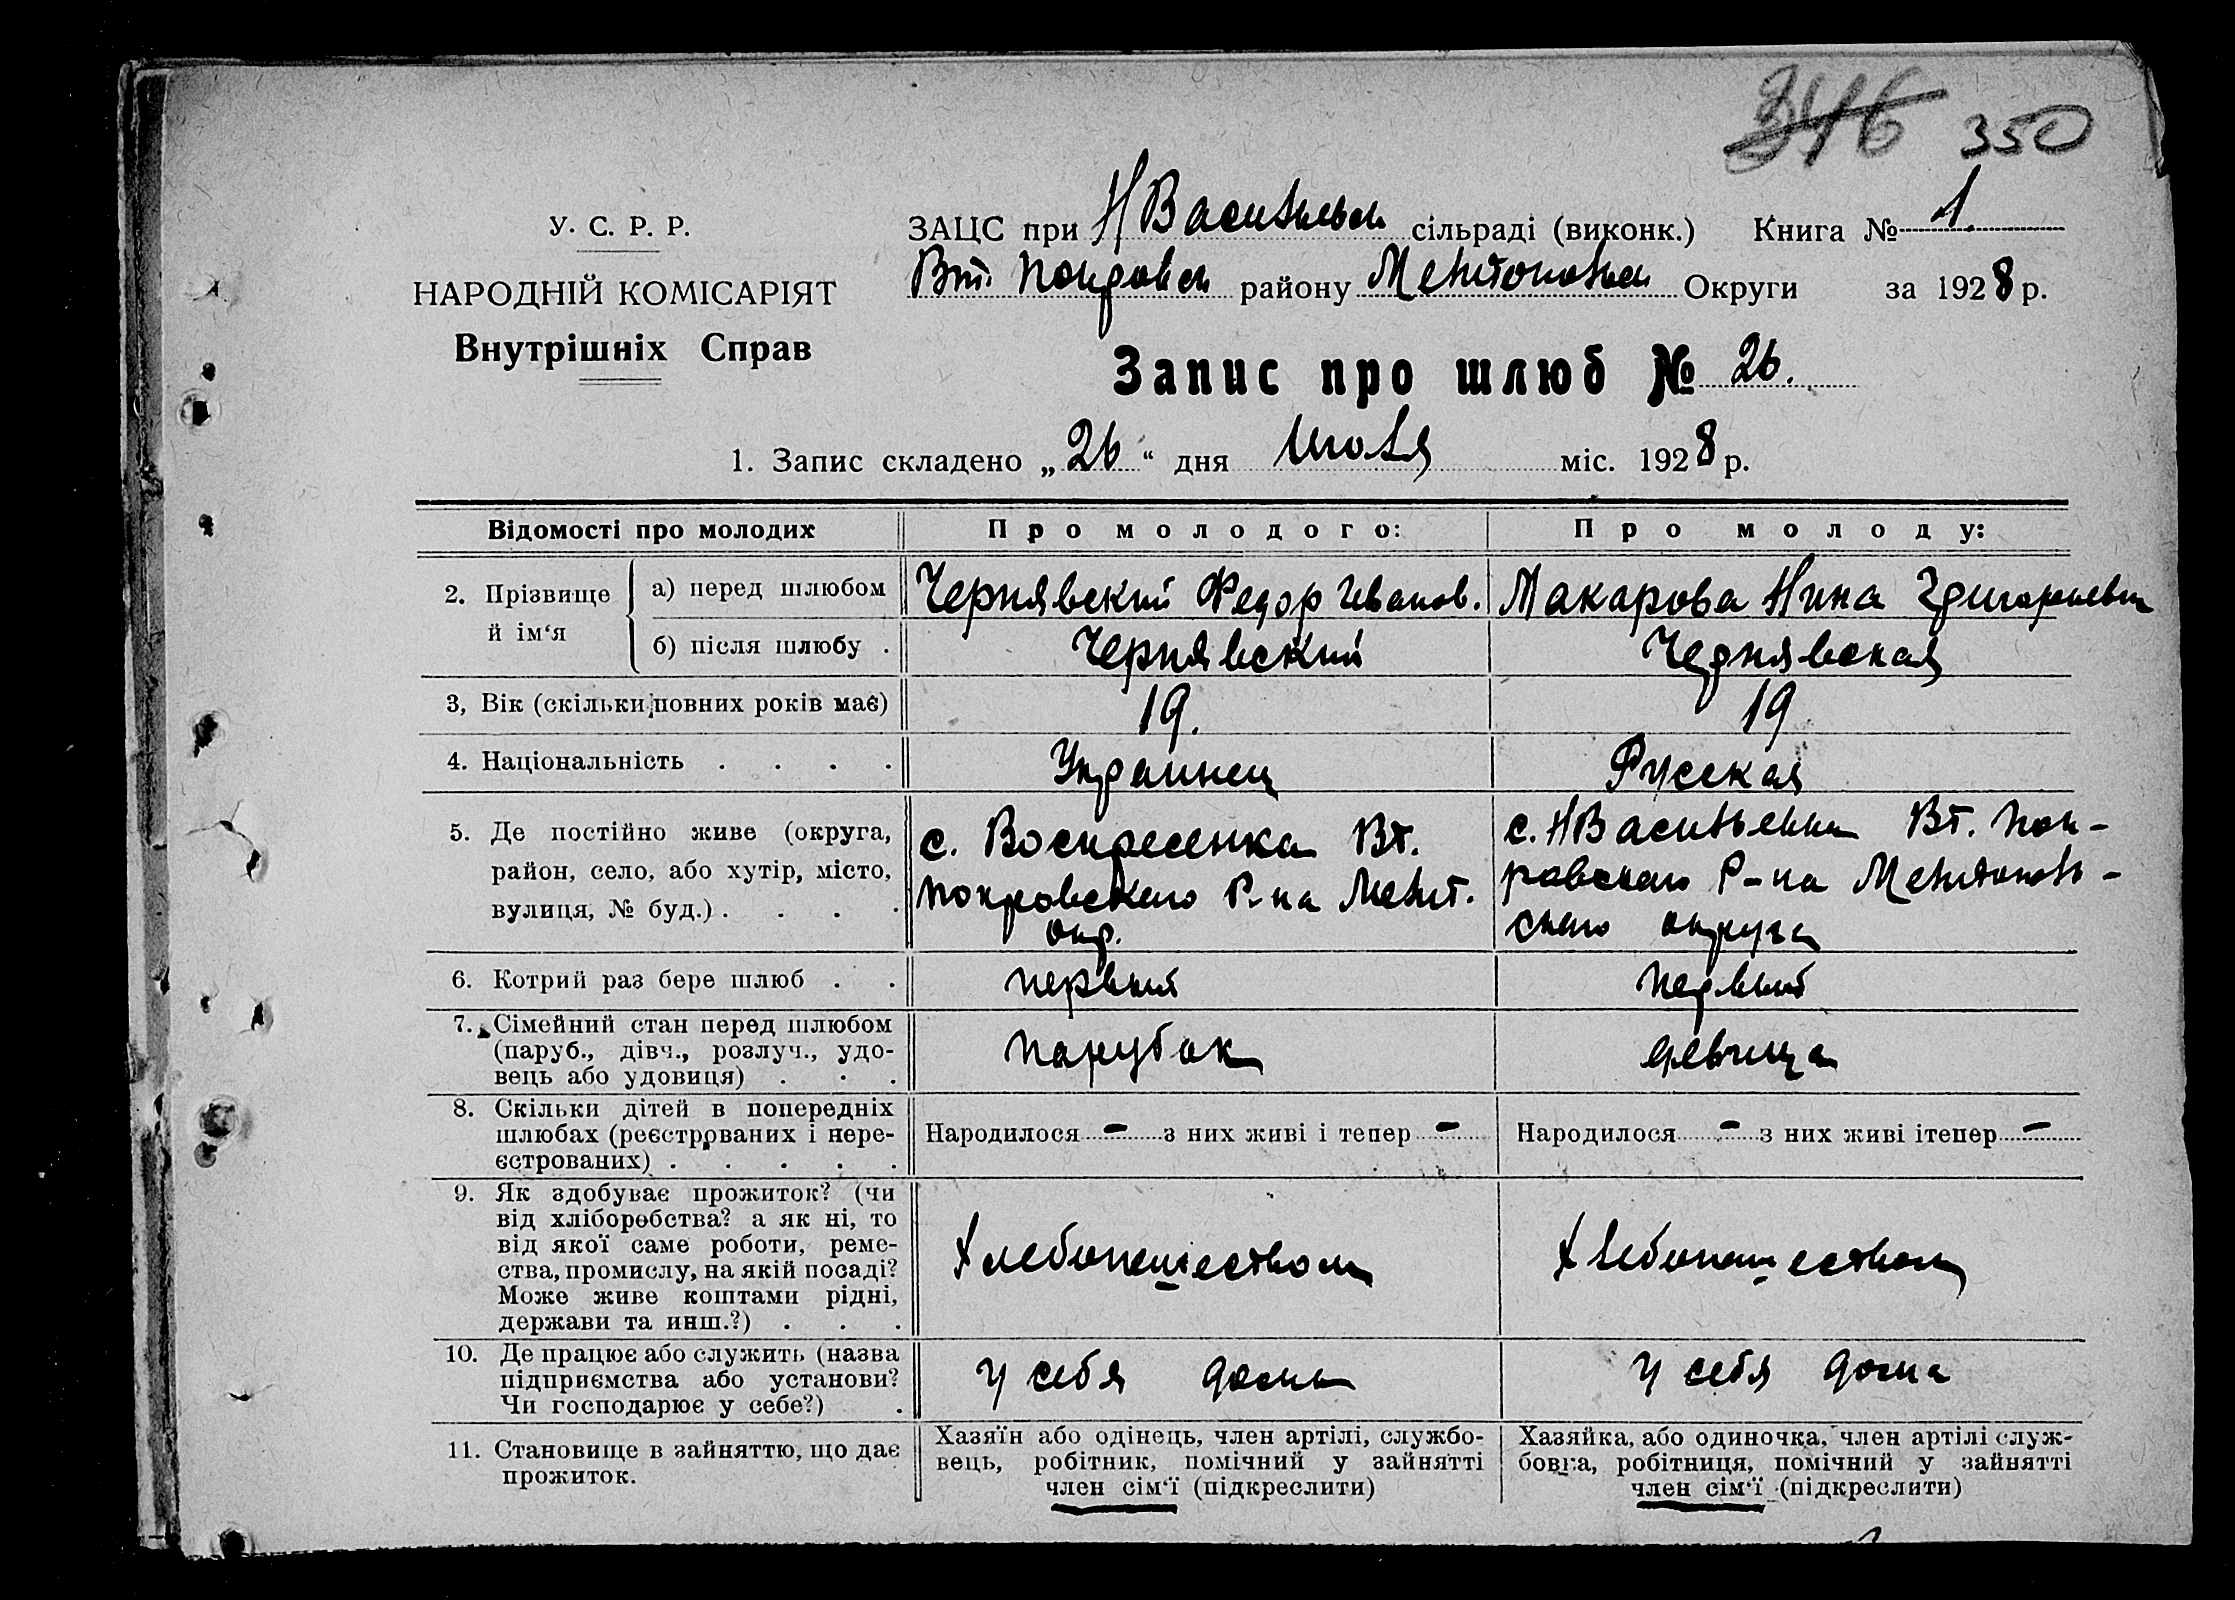 346 350
У. С. Р. Р.
НАРОДНІЙ КОМІСАРІЯТ
Внутрішніх Справ
ЗАЦС при Н Васильевск сільраді (виконк.) Книга № 1.
Вт. Покровск району Мелитопольск Округи за 1928 р.
Запис про шлюб № 26.
1. Запис складено „26“ дня Июля міс. 1928 р.
Відомості про молодих
Про молодого:
Про молоду:
2. Прізвище й ім‘я
а) перед шлюбом
Чернявский Федор Иванов.
Макарова Нина Григорьевн
б) після шлюбу .
Чернявский
Чернявская
3, Вік (скільки повних років має)
19.
19
4. Національність . . . .
Украинец
Русская
5. Де постійно живе (округа,
район, село, або хутір, місто,
вулиця, № буд.) . . . .
с. Воскресенка Вт.
Покровского Р-на Мелит.
окр.
с. Н Васильевка Вт. Пок-
ровского Р-на Мелитополь-
ского округа
6. Котрий раз бере шлюб . .
первый
первый
7. Сімейний стан перед шлюбом
(паруб., дівч., розлуч., удо-
вець або удовиця) . . .
Парубок
девица
8. Скільки дітей в попередніх
шлюбах (реєстрованих і нере-
єстрованих) . . . . .
Народилося – з них живі і тепер –
Народилося – з них живі ітепер –
9. Як здобуває прожиток? (чи
від хліборобства? а як ні, то
від якої саме роботи, реме-
ства, промислу, на якій посаді?
Може живе коштами рідні,
держави та инш.?) . . .
Хлебопашеством
Хлебопашеством
10. Де працює або служить (назва
підприємства або установи?
Чи господарює у себе?) .
у себя дома
у себя дома
11. Становище в зайняттю, що дає
прожиток.
Хазяїн або одінець, член артілі, службо-
вець, робітник, помічний у зайнятті
член сім‘ї (підкреслити)
Хазяйка, або одиночка, член артілі служ-
бовка, робітниця, помічний у зайнятті
член сім‘ї (підкреслити)